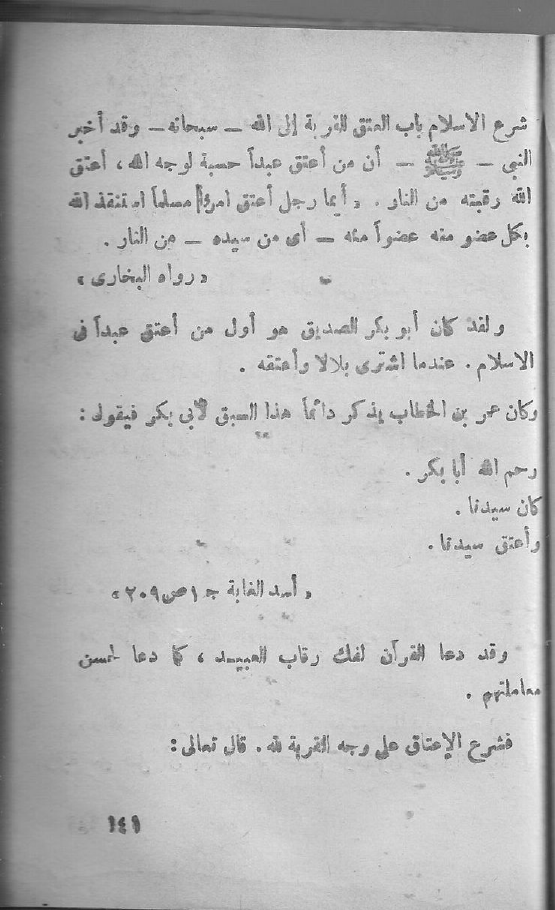 شرع الاسلام باب العتق للقربة إلى الله – سبحانه – وقد أخبر
النبي – ﷺ – أن من أعتق عبداً حسبة لوجه الله ، أعتق
الله رقبته من النار . « أيما رجل أعتق امرؤاً مسلماً استنقذ الله
بكل عضو منه عضواً منه – أى من سيده – من النار .
« رواه البخارى »
ولقد كان أبو بكر الصديق هو أول من أعتق عبداً فى
الاسلام . عندما اشترى بلالا وأعتقه .
وكان عمر بن الخطاب يذكر دائماً هذا السبق لأبى بكر فيقول :
رحم الله أبا بكر .
كان سيدنا .
وأعتق سيدنا .
« أسد الغابة ج ١ ص ٢٠٩ »
وقد دعا القرآن لفك رقاب العبيد ، كما دعا لحسن
معاملتهم .
فشرع الإعتاق على وجه القربة لله . قال تعالى :
١٤١